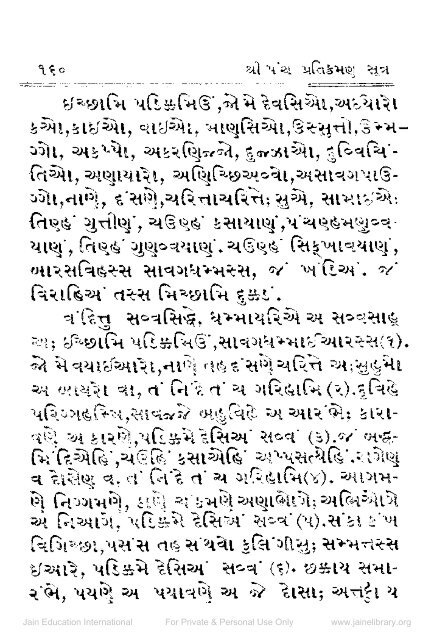 ૧૬૦ શ્રી પંચ પ્રતિક્રમણ સૂત્ર
ઇચ્છામિ પડિક્કમિઉં,જો મે દેવસિઓ,અઇયારો
કઓ,કાઇઓ, વાઇઓ, માણસિઓ,ઉસ્સુત્તો,ઉમ્મ-
ગ્ગો, અકપ્પો, અકરણિજ્જો, દુજ્ઝાઓ, દુવ્વિચિં-
તિઓ, અણાયારો, અણિચ્છિઅવ્વો,અસાવગપાઉ-
ગ્ગો,નાણે, દંસણે,ચરિત્તાચરિત્તે; સુએ, સામાઇએ;
તિણ્હં ગુત્તીણં, ચઉણ્હં કસાયાણં,પંચણ્હમણુવ્વ-
યાણં, તિણ્હં ગુણવ્વયાણં. ચઉણ્હં સિક્ખાવયાણં,
બારસવિહસ્સ સાવગધમ્મસ્સ, જં ખંડિઅં. જં
વિરાહિઅં તસ્સ મિચ્છામિ દુક્કડં.
વંદિત્તુ સવ્વસિદ્ધે, ધમ્માયરિએ અ સવ્વસાહૂ
અ; ઇચ્છામિ પડિક્કમિઉં,સાવગધમ્માઇઆરસ્સ(૧).
જો મે વયાઇઆરો,નાણે તહ દંસણે ચરિત્તે અ;સુહુમો
અ બાયરો વા, તં નિંદે તં ચ ગરિહામિ (૨).દુવિહે
પરિગ્ગહમ્મિ,સાવજ્જે બહુવિહે અ આરંભે; કારા-
વણે અ કરણે,પડિક્કમે દેસિઅં સવ્વં (૩).જં બદ્ધ-
મિંદિએહિં,ચઉહિં કસાએહિં અપ્પસત્થેહિં.રાગેણ
વ દોસેણ વ. તં નિંદે તં ચ ગરિહામિ(૪). આગમ-
ણે નિગ્ગમણે, ઠાણે ચંકમણે અણાભોગે; અભિઓગે
અ નિઓગે, પડિક્કમે દેસિઅં સવ્વં (૫).સંકા કંખ
વિગિચ્છા,પસંસ તહ સંથવો કુલિંગીસુ; સમ્મત્તસ્સ
ઇઆરે, પડિક્કમે દેસિઅં સવ્વં (૬). છક્કાય સમા-
રંભે, પયણે અ પયાવણે અ જે દોસા; અત્તટ્ઠા ય
Jain Education International For Private & Personal Use Only www.jainelibrary.org